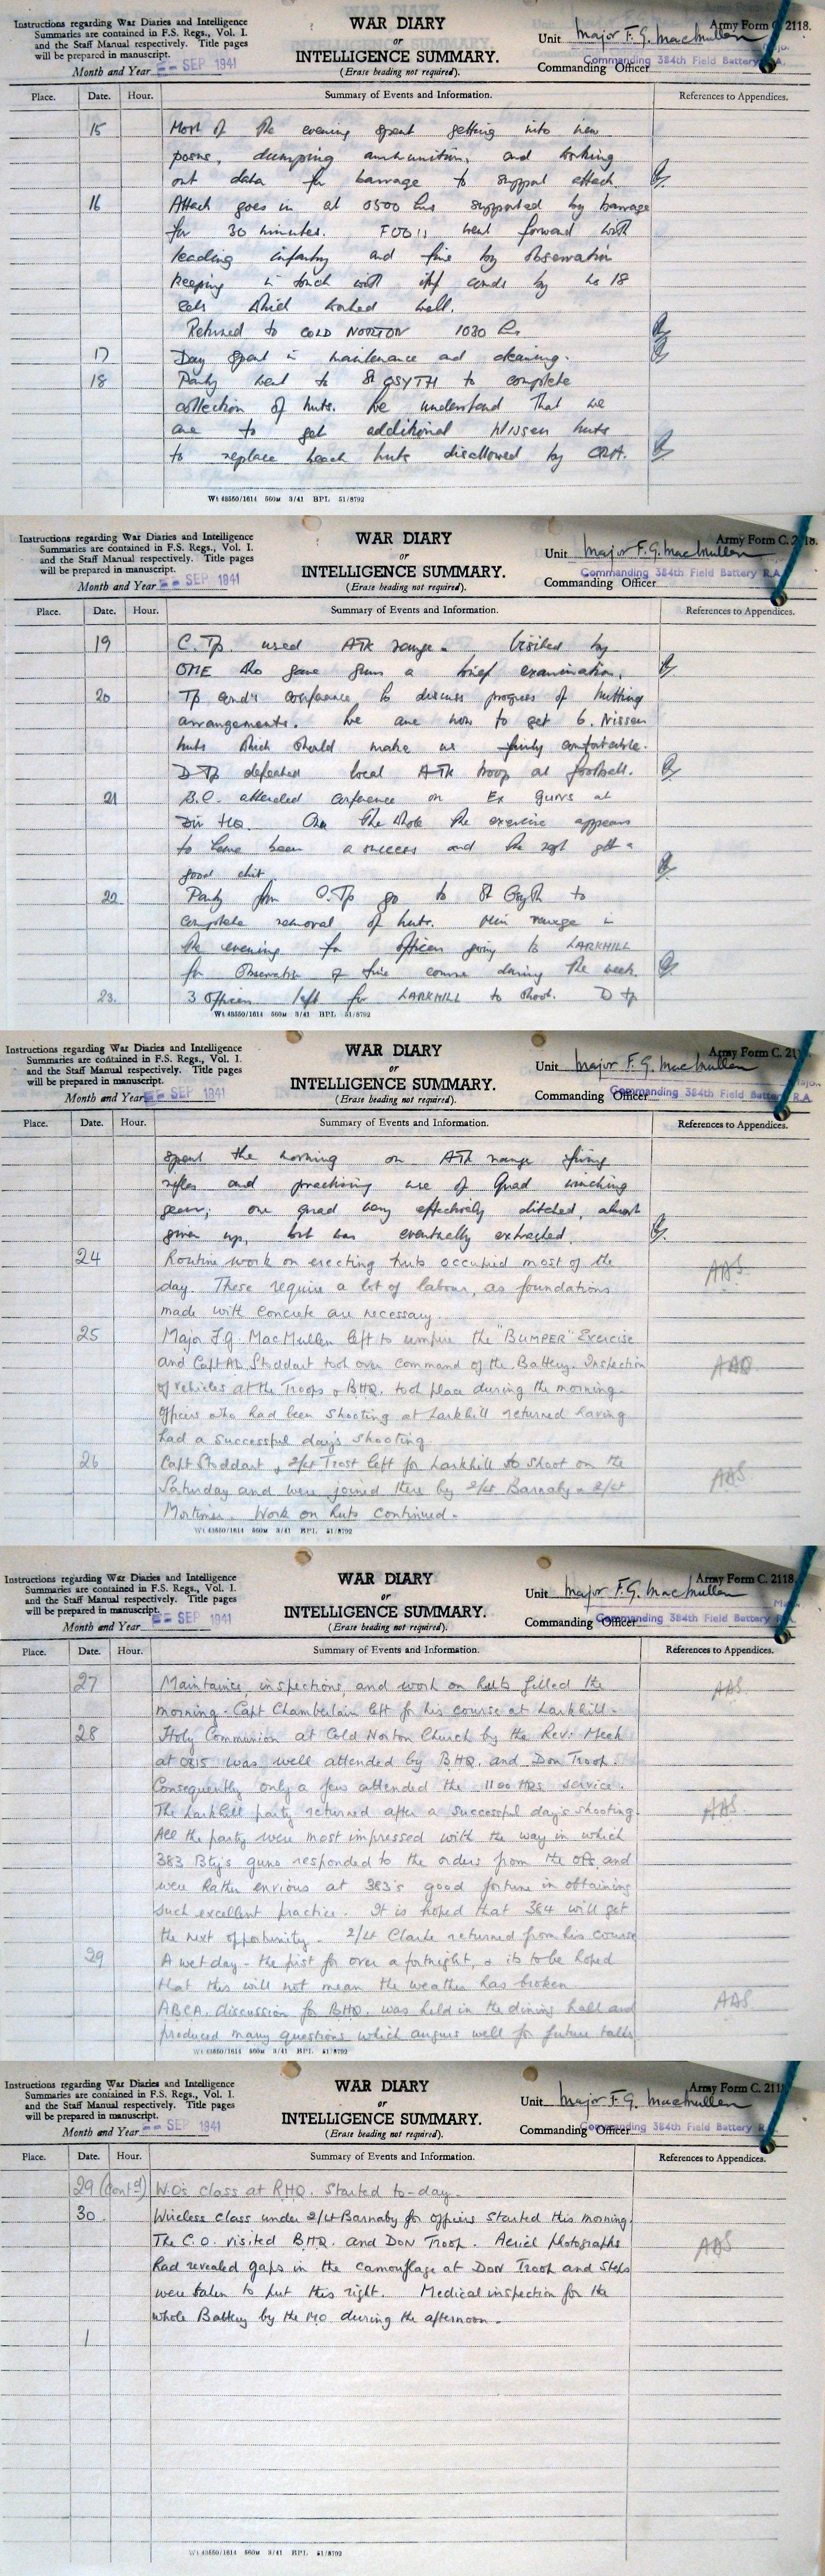 Instructions regarding War Diaries and Intelligence
Summaries are contained in F.S. Regs., Vol. I.
and the Staff Manual respectively. Title pages
will be prepared in manuscript.
Month and Year SEP 1941
WAR DIARY
or
INTELLIGENCE SUMMARY.
(Erase heading not required).
Army Form C. 2118.
Unit Major F.G. MacMullen
Commanding Officer
Commanding 384th Field Battery R.A.
Place. Date. Hour. Summary of Events and Information. References to Appendices.
15 Most of the evening spent getting into new
posns, dumping ammunition, and working
out data for barrage to support attack.
16 Attack goes in at 0500 hrs supported by barrage
for 30 minutes. FOO's went forward with
leading infantry and fire by observation
keeping in touch with inf comds by No 18
sets which worked well.
Returned to COLD NORTON 1030 hrs
17 Day spent in maintenance and cleaning.
18 Party went to St OSYTH to complete
collection of huts. We understand that we
are to get additional Nissen huts
to replace beach huts disallowed by CRA.
Wt 48550/1614 560M 3/41 BPL 51/8792
Instructions regarding War Diaries and Intelligence
Summaries are contained in F.S. Regs., Vol. I.
and the Staff Manual respectively. Title pages
will be prepared in manuscript.
Month and Year SEP 1941
WAR DIARY
or
INTELLIGENCE SUMMARY.
(Erase heading not required).
Army Form C. 2118.
Unit Major F.G. MacMullen
Commanding Officer
Commanding 384th Field Battery R.A.
Place. Date. Hour. Summary of Events and Information. References to Appendices.
19 C. Tp. used ATk range. Visited by
OME who gave guns a brief examination.
20 Tp comd's conference to discuss progress of hutting
arrangements. We are now to get 6. Nissen
huts which should make us fairly comfortable.
D Tp defeated local ATk troop at football.
21 B.C. attended conference on Ex at
Div HQ. On the whole the exercise appears
to have been a success and the regt got a
good chit.
22 Party from C.Tp go to St Osyth to
complete removal of huts. Min range in
the evening for officers going to LARKHILL
for Observation of fire course during the week.
23. 3 Officers left for LARKHILL to shoot. D tp
Wt 48550/1614 560M 3/41 BPL 51/8792
Instructions regarding War Diaries and Intelligence
Summaries are contained in F.S. Regs., Vol. I.
and the Staff Manual respectively. Title pages
will be prepared in manuscript.
Month and Year SEP 1941
WAR DIARY
or
INTELLIGENCE SUMMARY.
(Erase heading not required).
Army Form C. 211
Unit Major F.G. MacMullen
Commanding Officer
Commanding 384th Field Battery R.A
Place. Date. Hour. Summary of Events and Information. References to Appendices.
spent the morning on ATk range firing
rifles and practising use of Quad winching
gear; one quad very effectively ditched, almost
given up, but was eventually extracted.
24 Routine work on erecting huts occupied most of the
day. These require a lot of labour, as foundations
made with concrete are necessary. AAS
25 Major F.G. MacMullen left to umpire the "BUMPER" Exercise
and Capt AA Stoddart took over command of the Battery. Inspection
of vehicles at the Troops & BHQ. took place during the morning.
Officers who had been shooting at Larkhill returned having
had a successful day's shooting. AAS
26 Capt Stoddart & 2/Lt Trost left for Larkhill to shoot on the
Saturday and were joined there by 2/Lt Barnaby & 2/Lt
Mortimer. Work on huts continued. AAS
Wt 48550/1614 560M 3/41 BPL 51/8792
Instructions regarding War Diaries and Intelligence
Summaries are contained in F.S. Regs., Vol. I.
and the Staff Manual respectively. Title pages
will be prepared in manuscript.
Month and Year SEP 1941
WAR DIARY
or
INTELLIGENCE SUMMARY.
(Erase heading not required).
Army Form C. 2118.
Unit Major F.G. MacMullen
Commanding Officer
Commanding 384th Field Battery
Place. Date. Hour. Summary of Events and Information. References to Appendices.
27 Maintaince, inspections, and work on huts filled the
morning. Capt Chamberlain left for his course at Larkhill. AAS
28 Holy Communion at Cold Norton Church by the Rev: Meek
at 0815 was well attended by BHQ. and Don Troop.
Consequently only a few attended the 1100 HRS service.
The Larkhill party returned after a successful day's shooting.
All the party were most impressed with the way in which
383 Bty's guns responded to the orders from the OPs and
were Rather envious at 383's good fortune in obtaining
such excellent practice. It is hoped that 384 will get
the next opportunity. 2/Lt Clarke returned from his course AAS
29 A wet day - the first for over a fortnight, & its to be hoped
that this will not mean the weather has broken.
ABCA. discussion for BHQ. was held in the dining hall and
produced many questions which augurs well for future talks AAS
Wt 48550/1614 560M 3/41 BPL 51/8792
Instructions regarding War Diaries and Intelligence
Summaries are contained in F.S. Regs., Vol. I.
and the Staff Manual respectively. Title pages
will be prepared in manuscript.
Month and Year SEP 1941
WAR DIARY
or
INTELLIGENCE SUMMARY.
(Erase heading not required).
Army Form C. 211
Unit Major F.G. MacMullen
Commanding Officer
Commanding 384th Field Battery R
Place. Date. Hour. Summary of Events and Information. References to Appendices.
29 (contd) W.O's class at RHQ. Started to-day.
30. Wireless class under 2/Lt Barnaby for officers started this morning.
The C.O. visited BHQ. and DON Troop. Aerial photographs
had revealed gaps in the camouflage at DON Troop and steps
were taken to put this right. Medical inspection for the
whole Battery by the MO during the afternoon. AAS
Wt 48550/1614 560M 3/41 BPL 51/8792